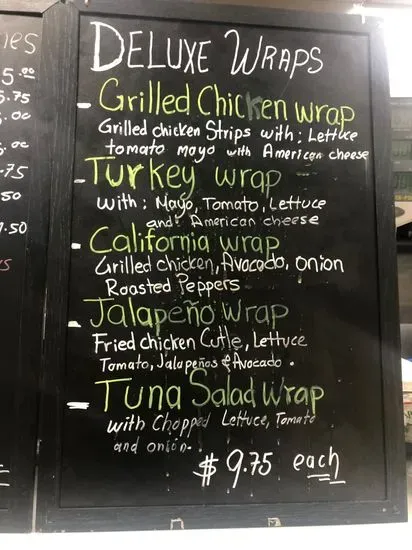 DELUXE WRAPS
- Grilled Chicken wrap
Grilled chicken Strips with; Lettuce
tomato mayo with American cheese
- Turkey wrap
with: Mayo, Tomato, Lettuce
and American cheese
- California wrap
Grilled chicken, Avocado, onion
Roasted Peppers
- Jalapeño Wrap
Fried chicken Cutle, Lettuce
Tomato, Jalapeños & Avocado.
- Tuna Salad Wrap
with Chopped Lettuce, Tomato
and onion.
$9.75 each